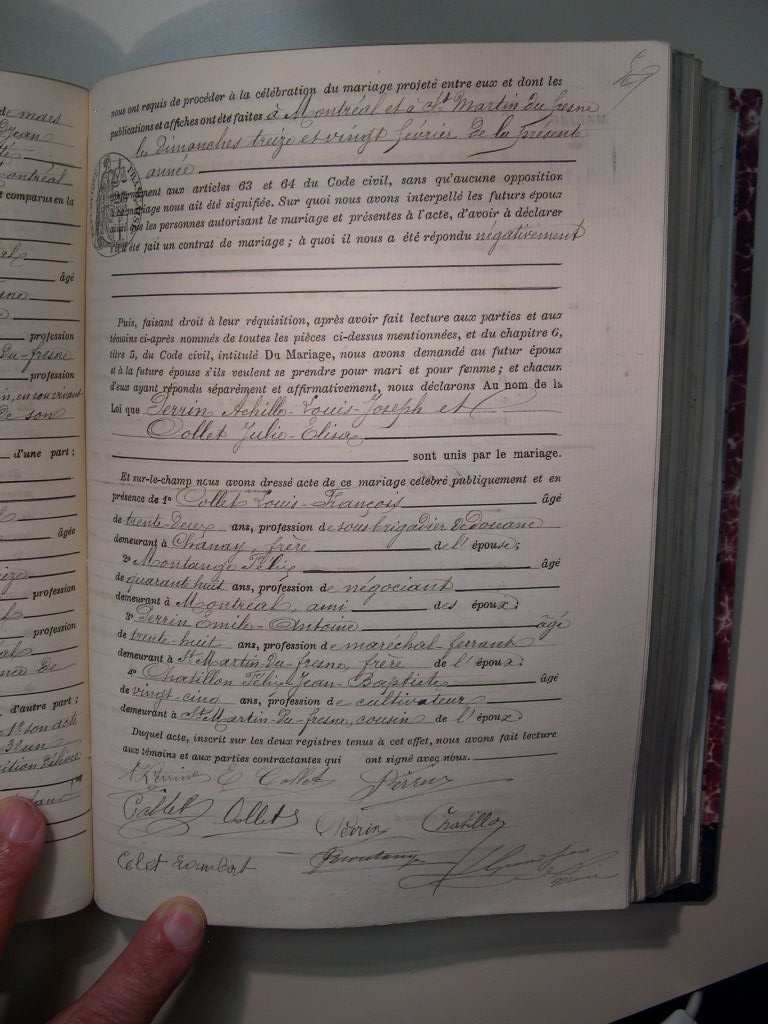 de mars
Jean
Montréal
t comparus en la
âgé
profession
du-fresne
profession
de son
d'une part ;
âgée
profession
profession
d'autre part ;
1° son acte
3° un
nous ont requis de procéder à la célébration du mariage projeté entre eux et dont les
publications et affiches ont été faites à Montréal et à St Martin du fresne
les Dimanches treize et vingt février de la présente
année
conformément aux articles 63 et 64 du Code civil, sans qu'aucune opposition
mariage nous ait été signifiée. Sur quoi nous avons interpellé les futurs époux
ainsi que les personnes autorisant le mariage et présentes à l'acte, d'avoir à déclarer
s'il a été fait un contrat de mariage ; à quoi il nous a été répondu négativement
Puis, faisant droit à leur réquisition, après avoir fait lecture aux parties et aux
témoins ci-après nommés de toutes les pièces ci-dessus mentionnées, et du chapitre 6,
titre 5, du Code civil, intitulé Du Mariage, nous avons demandé au futur époux
et à la future épouse s'ils veulent se prendre pour mari et pour femme ; et chacun
d'eux ayant répondu séparément et affirmativement, nous déclarons Au nom de la
Loi que Perrin Achille-Louis-Joseph et
Collet Julie-Elisa
sont unis par le mariage.
Et sur-le-champ nous avons dressé acte de ce mariage célébré publiquement et en
présence de 1° Collet Louis-François âgé
de trente-deux ans, profession de sous-brigadier de douane
demeurant à Chanay, frère de l'épouse;
2° Montange Félix âgé
de quarante huit ans, profession de négociant
demeurant à Montréal, ami des époux;
3° Perrin Emile-Antoine âgé
de trente-huit ans, profession de maréchal-ferrant
demeurant à St Martin-du-fresne, frère de l'époux;
4° Chatillon Félix Jean-Baptiste âgé
de vingt cinq ans, profession de cultivateur
demeurant à St Martin-du-fresne, cousin de l'époux
Duquel acte, inscrit sur les deux registres tenus à cet effet, nous avons fait lecture
aux témoins et aux parties contractantes qui ont signé avec nous.
A. Perrin E. Collet Perrin
Collet Collet Perrin Chatillon
Colet Montange